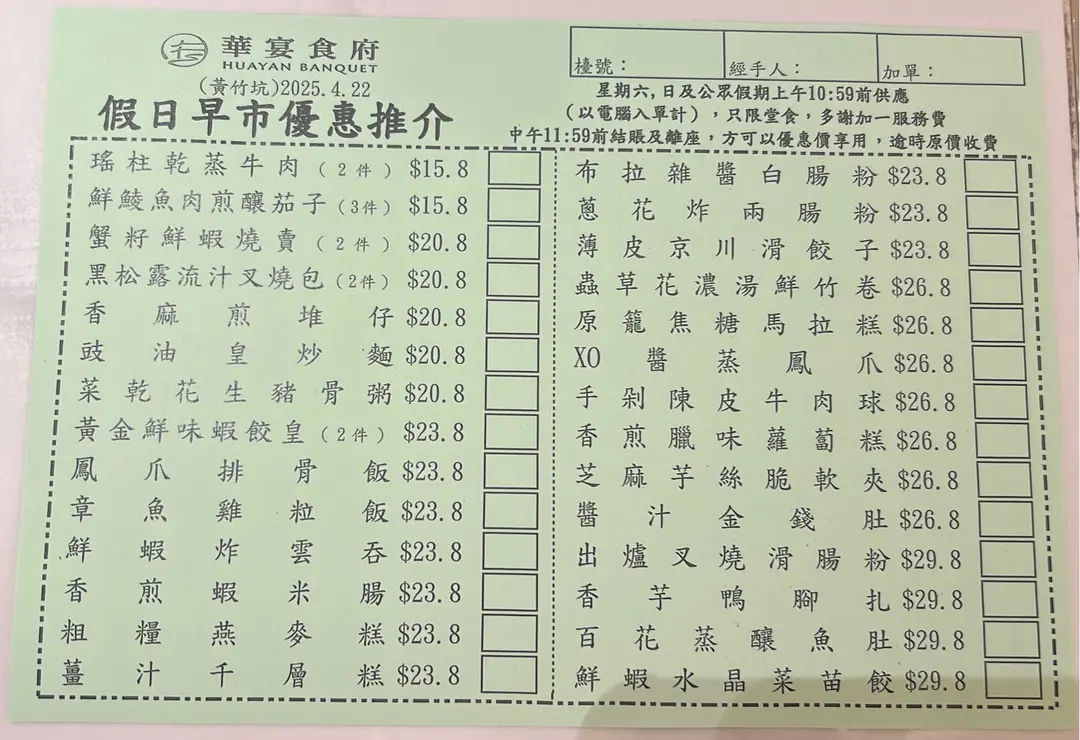 華宴食府
HUAYAN BANQUET
(黃竹坑)2025.4.22
假日早市優惠推介
檯號：
經手人：
加單：
星期六,日及公眾假期上午10:59前供應
(以電腦入單計)，只限堂食，多謝加一服務費
中午11:59前結賬及離座，方可以優惠價享用，逾時原價收費
瑤柱乾蒸牛肉(2件) $15.8
鮮鯪魚肉煎釀茄子(3件) $15.8
蟹籽鮮蝦燒賣(2件) $20.8
黑松露流汁叉燒包(2件) $20.8
香麻煎堆仔 $20.8
豉油皇炒麵 $20.8
菜乾花生豬骨粥 $20.8
黃金鮮味蝦餃皇(2件) $23.8
鳳爪排骨飯 $23.8
章魚雞粒飯 $23.8
鮮蝦炸雲吞 $23.8
香煎蝦米腸 $23.8
粗糧燕麥糕 $23.8
薑汁千層糕 $23.8
布拉雜醬白腸粉 $23.8
蔥花炸兩腸粉 $23.8
薄皮京川滑餃子 $23.8
蟲草花濃湯鮮竹卷 $26.8
原籠焦糖馬拉糕 $26.8
XO醬蒸鳳爪 $26.8
手剁陳皮牛肉球 $26.8
香煎臘味蘿蔔糕 $26.8
芝麻芋絲脆軟夾 $26.8
醬汁金錢肚 $26.8
出爐叉燒滑腸粉 $29.8
香芋鴨腳扎 $29.8
百花蒸釀魚肚 $29.8
鮮蝦水晶菜苗餃 $29.8